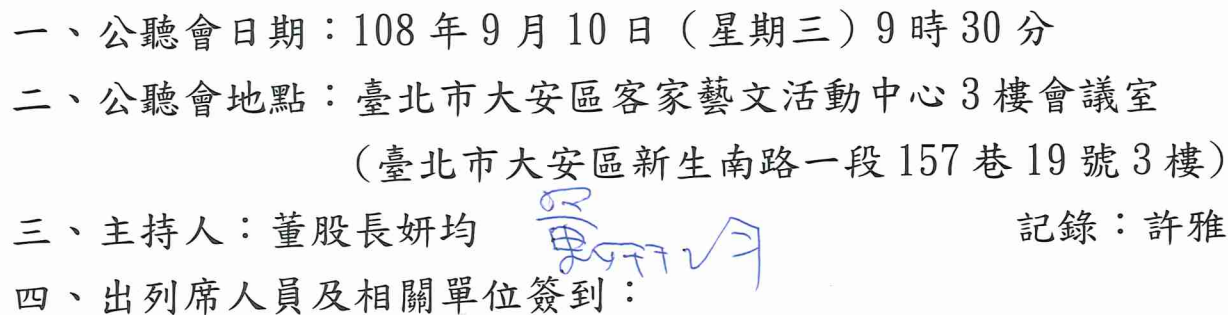 一、公聽會日期：108 年 9 月 10 日（星期三）9 時 30 分
二、公聽會地點：臺北市大安區客家藝文活動中心 3 樓會議室
（臺北市大安區新生南路一段 157 巷 19 號 3 樓）
三、主持人：董股長妍均 董妍均 記錄：許雅
四、出列席人員及相關單位簽到：